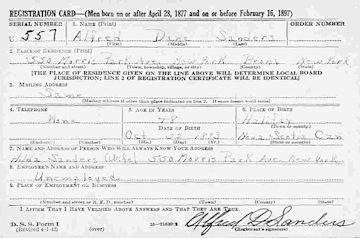 REGISTRATION CARD—(Men born on or after April 28, 1877 and on or before February 16, 1897)
SERIAL NUMBER 1. NAME (Print) ORDER NUMBER
U 557 Alfred Dane Sanders
(First) (Middle) (Last)
2. PLACE OF RESIDENCE (Print)
550 Morris Park Ave New York Bronx New York
(Number and street) (Town, township, village, or city) (County) (State)
[THE PLACE OF RESIDENCE GIVEN ON THE LINE ABOVE WILL DETERMINE LOCAL BOARD
JURISDICTION; LINE 2 OF REGISTRATION CERTIFICATE WILL BE IDENTICAL]
3. MAILING ADDRESS
Same
(Mailing address if other than place indicated on line 2. If same insert word same)
4. TELEPHONE 5. AGE IN YEARS 6. PLACE OF BIRTH
None 48 Halifax
DATE OF BIRTH (Town or county)
Oct Nova Scotia Can
(Exchange) (Number) (Mo.) (Day) (Yr.) (State or country)
7. NAME AND ADDRESS OF PERSON WHO WILL ALWAYS KNOW YOUR ADDRESS
Hilda Sanders (Wife) 550 Morris Park Ave. New York
8. EMPLOYER'S NAME AND ADDRESS
Unemployed
9. PLACE OF EMPLOYMENT OR BUSINESS
(Number and street or R. F. D. number) (Town) (County) (State)
I AFFIRM THAT I HAVE VERIFIED ABOVE ANSWERS AND THAT THEY ARE TRUE.
D. S. S. Form 1
(Revised 4-1-42) (over) Alfred D Sanders